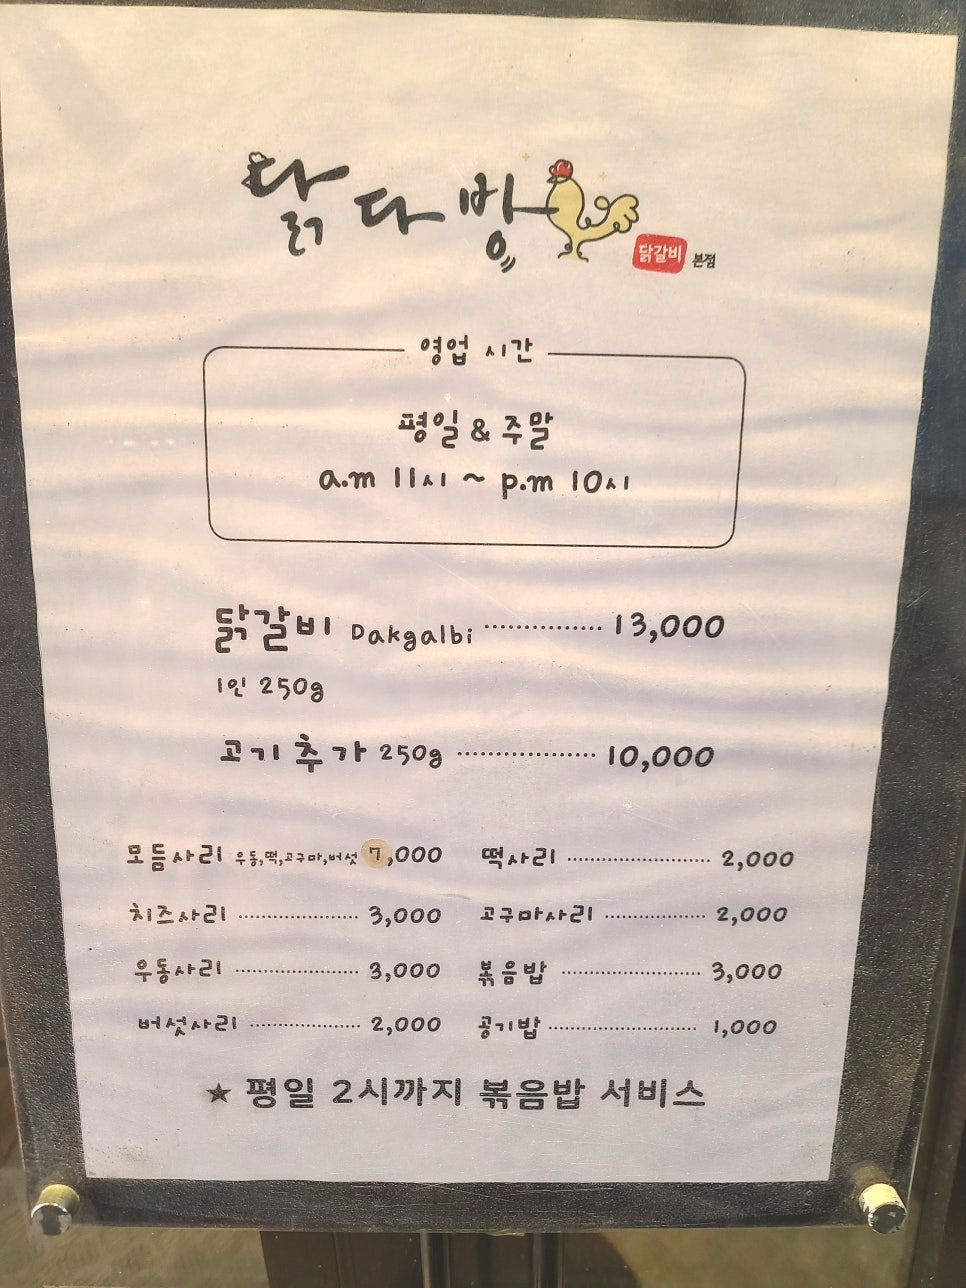 닭다방
닭갈비 본점
영업 시간
평일 & 주말
a.m 11시 ~ p.m 10시
닭갈비 Dakgalbi ............... 13,000
1인 250g
고기추가 250g .................. 10,000
모듬사리 우동,떡,고구마,버섯 7,000
떡사리 .................... 2,000
치즈사리 .................. 3,000
고구마사리 .................. 2,000
우동사리 .................. 3,000
볶음밥 .................... 3,000
버섯사리 .................. 2,000
공기밥 .................... 1,000
★ 평일 2시까지 볶음밥 서비스